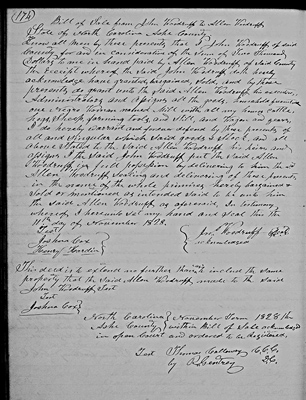 (174)
Bill of Sale from John Woodruff to Allen Woodruff
State of North Carolina Ashe County
Know all men by these presents that I John Woodruff of said
County for and in consideration of the sum of Five Thousand
Dollars to me in hand paid by Allen Woodruff of said County
the receipt whereof the said John Woodruff doth hereby
acknowledge have granted, bargained, sold, and by these
presents do grant unto the said Allen Woodruff his executors,
Administrators and Assigns all the goods, household furniture
one Negro
Hogs, Sheep farming tools, and Still, and Wagon and gears,
I do hereby warrant and forever defend by these presents of
all and singular which said goods & stock, and all
above Stated to the said Allen Woodruff his heirs and
assigns I the said John Woodruff put the said Allen
Woodruff in full possession by delivering to him the said
Allen Woodruff sealing and delivering of these presents
in the name of the whole premises hereby bargained &
sold or mentioned or intended so to be unto him
the said Allen Woodruff as aforesaid, In testimony
whereof, I hereunto set my hand and seal this the
10th day of November 1828.
Test
Joshua Cox
Henry Hardin
Jno. Woodruff (Seal)
acknowledged
This deed is to extend no further than to include the same
property that the said Allen Woodruff made to the said
John Woodruff,
Test
Joshua Cox
North Carolina
Ashe County
November Term 1828 the
within Bill of Sale acknowledged
in open Court and ordered to be Registered,
Test Thomas Calloway C.C.C.
by R. Gentry D.C.